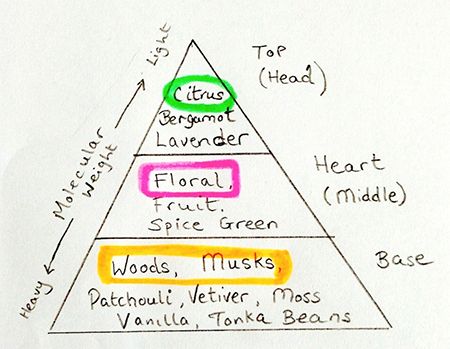 Light
Molecular
Weight
Heavy
Top
(Head)
Citrus
Bergamot
Lavender
Heart
(Middle)
Floral,
Fruit.
Spice Green
Base
Woods, Musks,
Patchouli, Vetiver, Moss
Vanilla, Tonka Beans